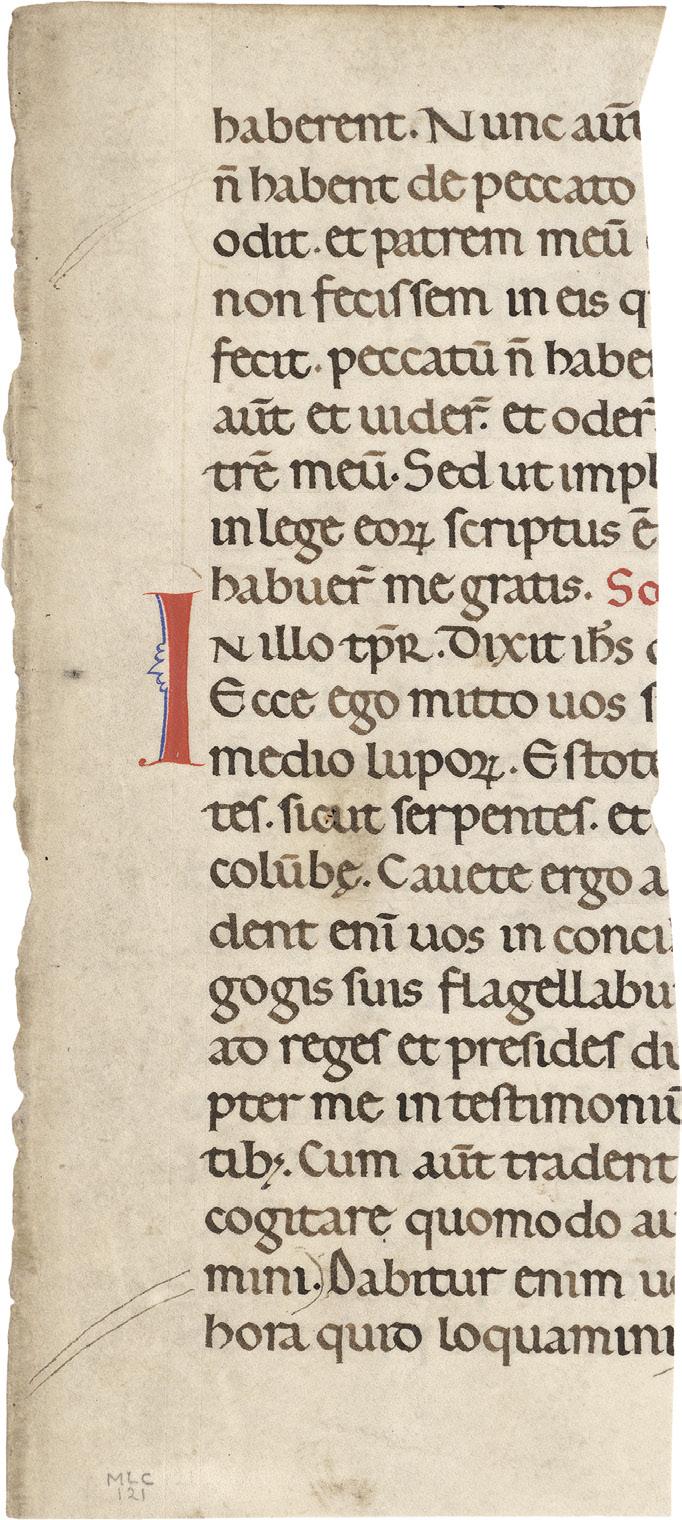 haberent. Nunc aut̄
n̄ habent de peccato
odit. et patrem meū
non feciſſem in eis q
fecit. peccatū n̄ habe
aūt et uider̄. et oder̄
trē meū. Sed ut impl
in lege eoꝝ ſcriptus ē
habuer̄ me gratis. So
IN illo tp̄r. Dixit ih̄s
Ecce ego mitto uos ſ
medio lupoꝝ. Eſtote
teſ. ſicut ſerpenteſ. et
colūbę. Cauete ergo a
dent enī uos in conci
gogis ſuis flagellabu
ad regeſ et preſideſ du
pter me in teſtimoniū
tibꝫ. Cum aūt tradent
cogitare quomodo au
mini. Dabitur enim uo
hora quid loquamini
MLC
121